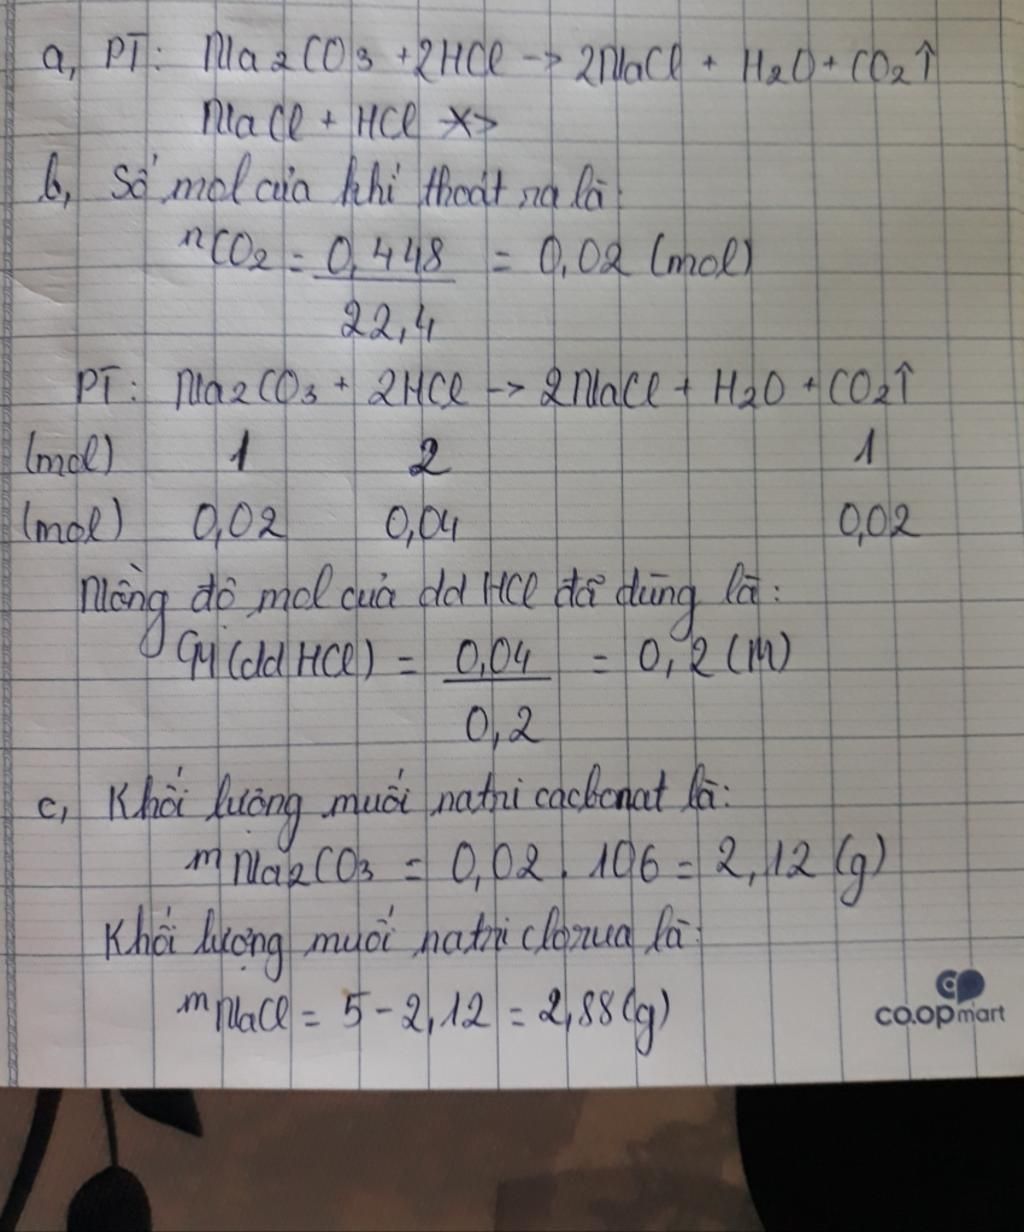 a, PT: Na2CO3 + 2HCl -> 2NaCl + H2O + CO2↑
NaCl + HCl ×>
b, Số mol của khí thoát ra là:
nCO2 = 0,448 / 22,4 = 0,02 (mol)
PT: Na2CO3 + 2HCl -> 2NaCl + H2O + CO2↑
(mol) 1 2 1
(mol) 0,02 0,04 0,02
Nồng độ mol của dd HCl đã dùng là:
CM (dd HCl) = 0,04 / 0,2 = 0,2 (M)
c, Khối lượng muối natri cacbonat là:
mNa2CO3 = 0,02 . 106 = 2,12 (g)
Khối lượng muối natri clorua là:
mNaCl = 5 - 2,12 = 2,88 (g)
co.opmart